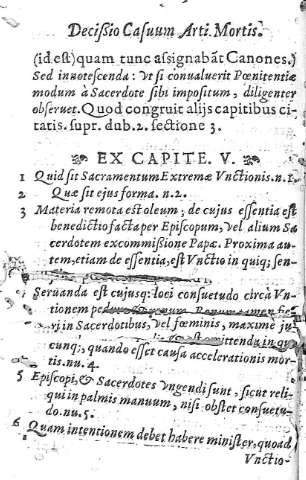 Decißio Casuum Arti. Mortis.
(id est) quam tunc assignabāt Canones.)
Sed innotescenda: vt si conualuerit Pœnitentiæ
modum à Sacerdote sibi impositum, diligenter
obseruet. Quod congruit alijs capitibus ci-
tatis. supr. dub. 2. sectione 3.
EX CAPITE. V.
1 Quid sit Sacramentum Extremæ Vnctionis. n. 1.
2 Quæ sit ejus forma. n. 2.
3 Materia remota est oleum; de cujus essentia est
benedictio facta per Episcopum, vel alium Sa
cerdotem ex commißione Papæ. Proxima au-
tem, etiam de essentia, est Vnctio in quinq; sen-
4 Seruanda est cujusq: loci consuetudo circà Vn-
tionem pedum
ri in Sacerdotibus, vel fœminis, maximè ju-
mittenda in qu
cunq;, quando esset causa accelerationis mor-
tis. nu. 4.
5 Episcopi, & Sacerdotes vngendi sunt, sicut reli-
qui in palmis manuum, nisi obstet consuetu-
do. nu. 5.
6 Quam intentionem debet habere minister, quoad
Vnctio-